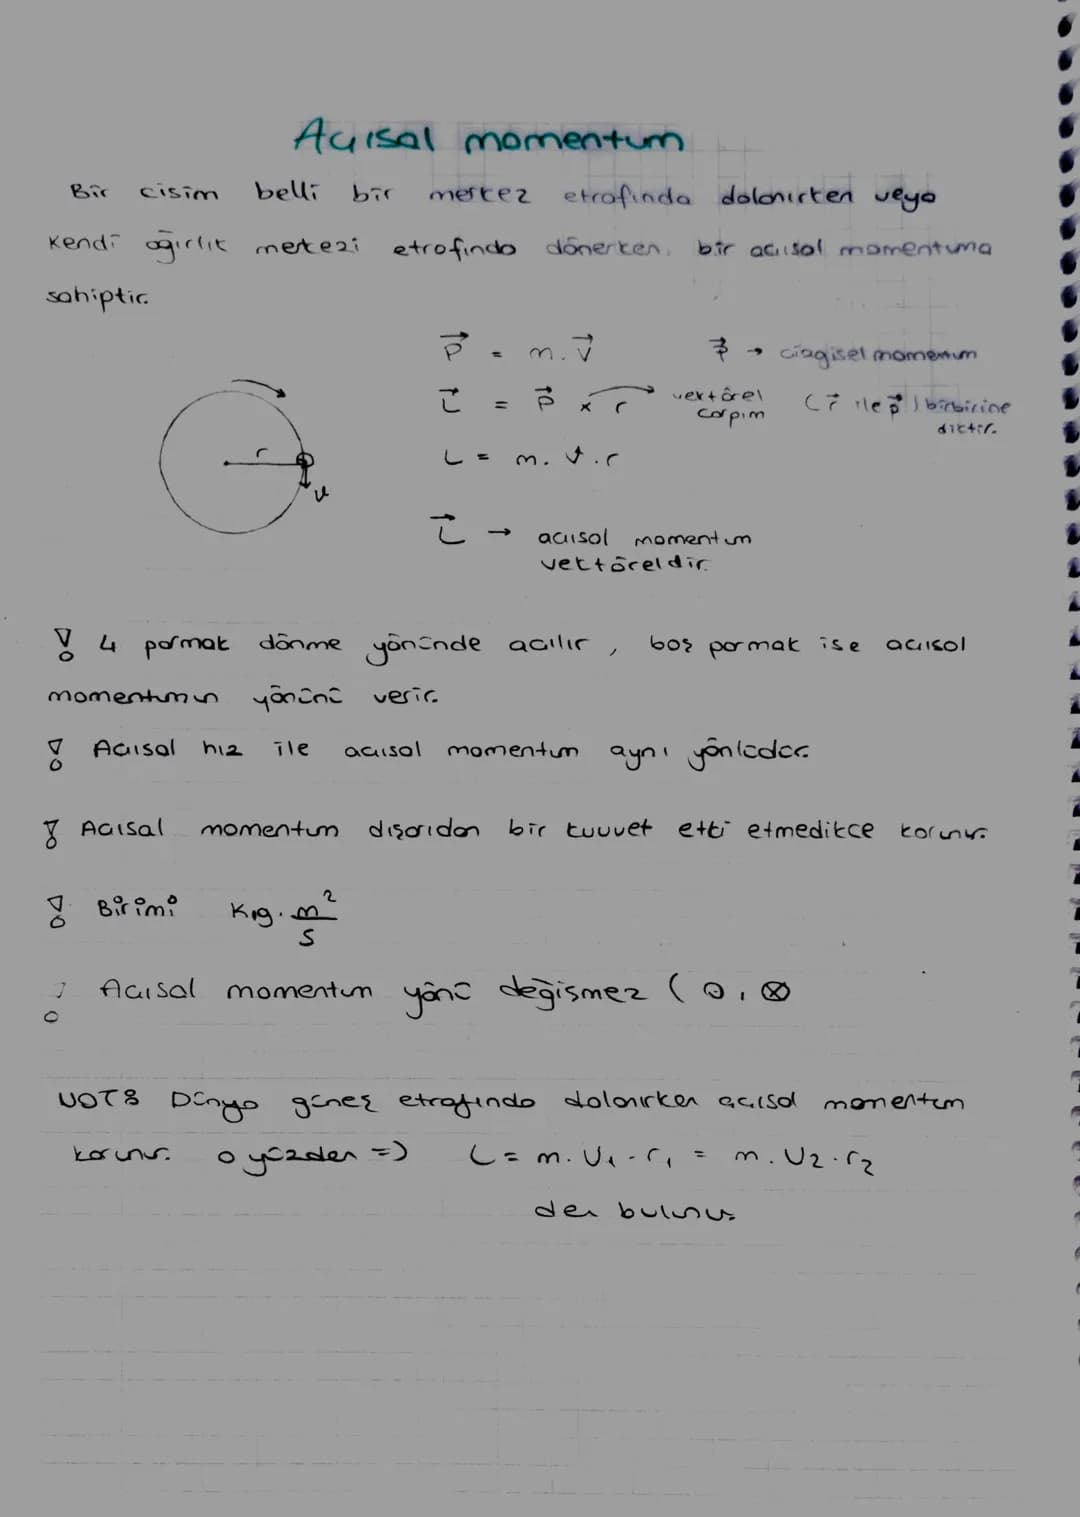 Açısal momentum
Bir cisim belli bir merkez etrafında dolanırken veya
kendi ağırlık merkezi etrafında dönerken, bir açısal momentuma
sahiptir.
P⃗ = m.v⃗ p⃗ → çizgisel momentum
L⃗ = P⃗ x r → vektörel çarpım (r⃗ ile p⃗) birbirine diktir.
r
L = m.v.r
v
L⃗ → açısal momentum
vektöreldir.
! 4 parmak dönme yönünde açılır, baş parmak ise açısal
momentumun yönünü verir.
! Açısal hız ile açısal momentum aynı yönlüdür.
! Açısal momentum dışarıdan bir kuvvet etki etmedikçe korunur.
! Birimi kg.m²/s
! Açısal momentum yönü değişmez (⊙, ⊗
NOT: Dünya güneş etrafında dolanırken açısal momentum
korunur. o yüzden => L = m.V₁.r₁ = m.V₂.r₂
den bulunur.